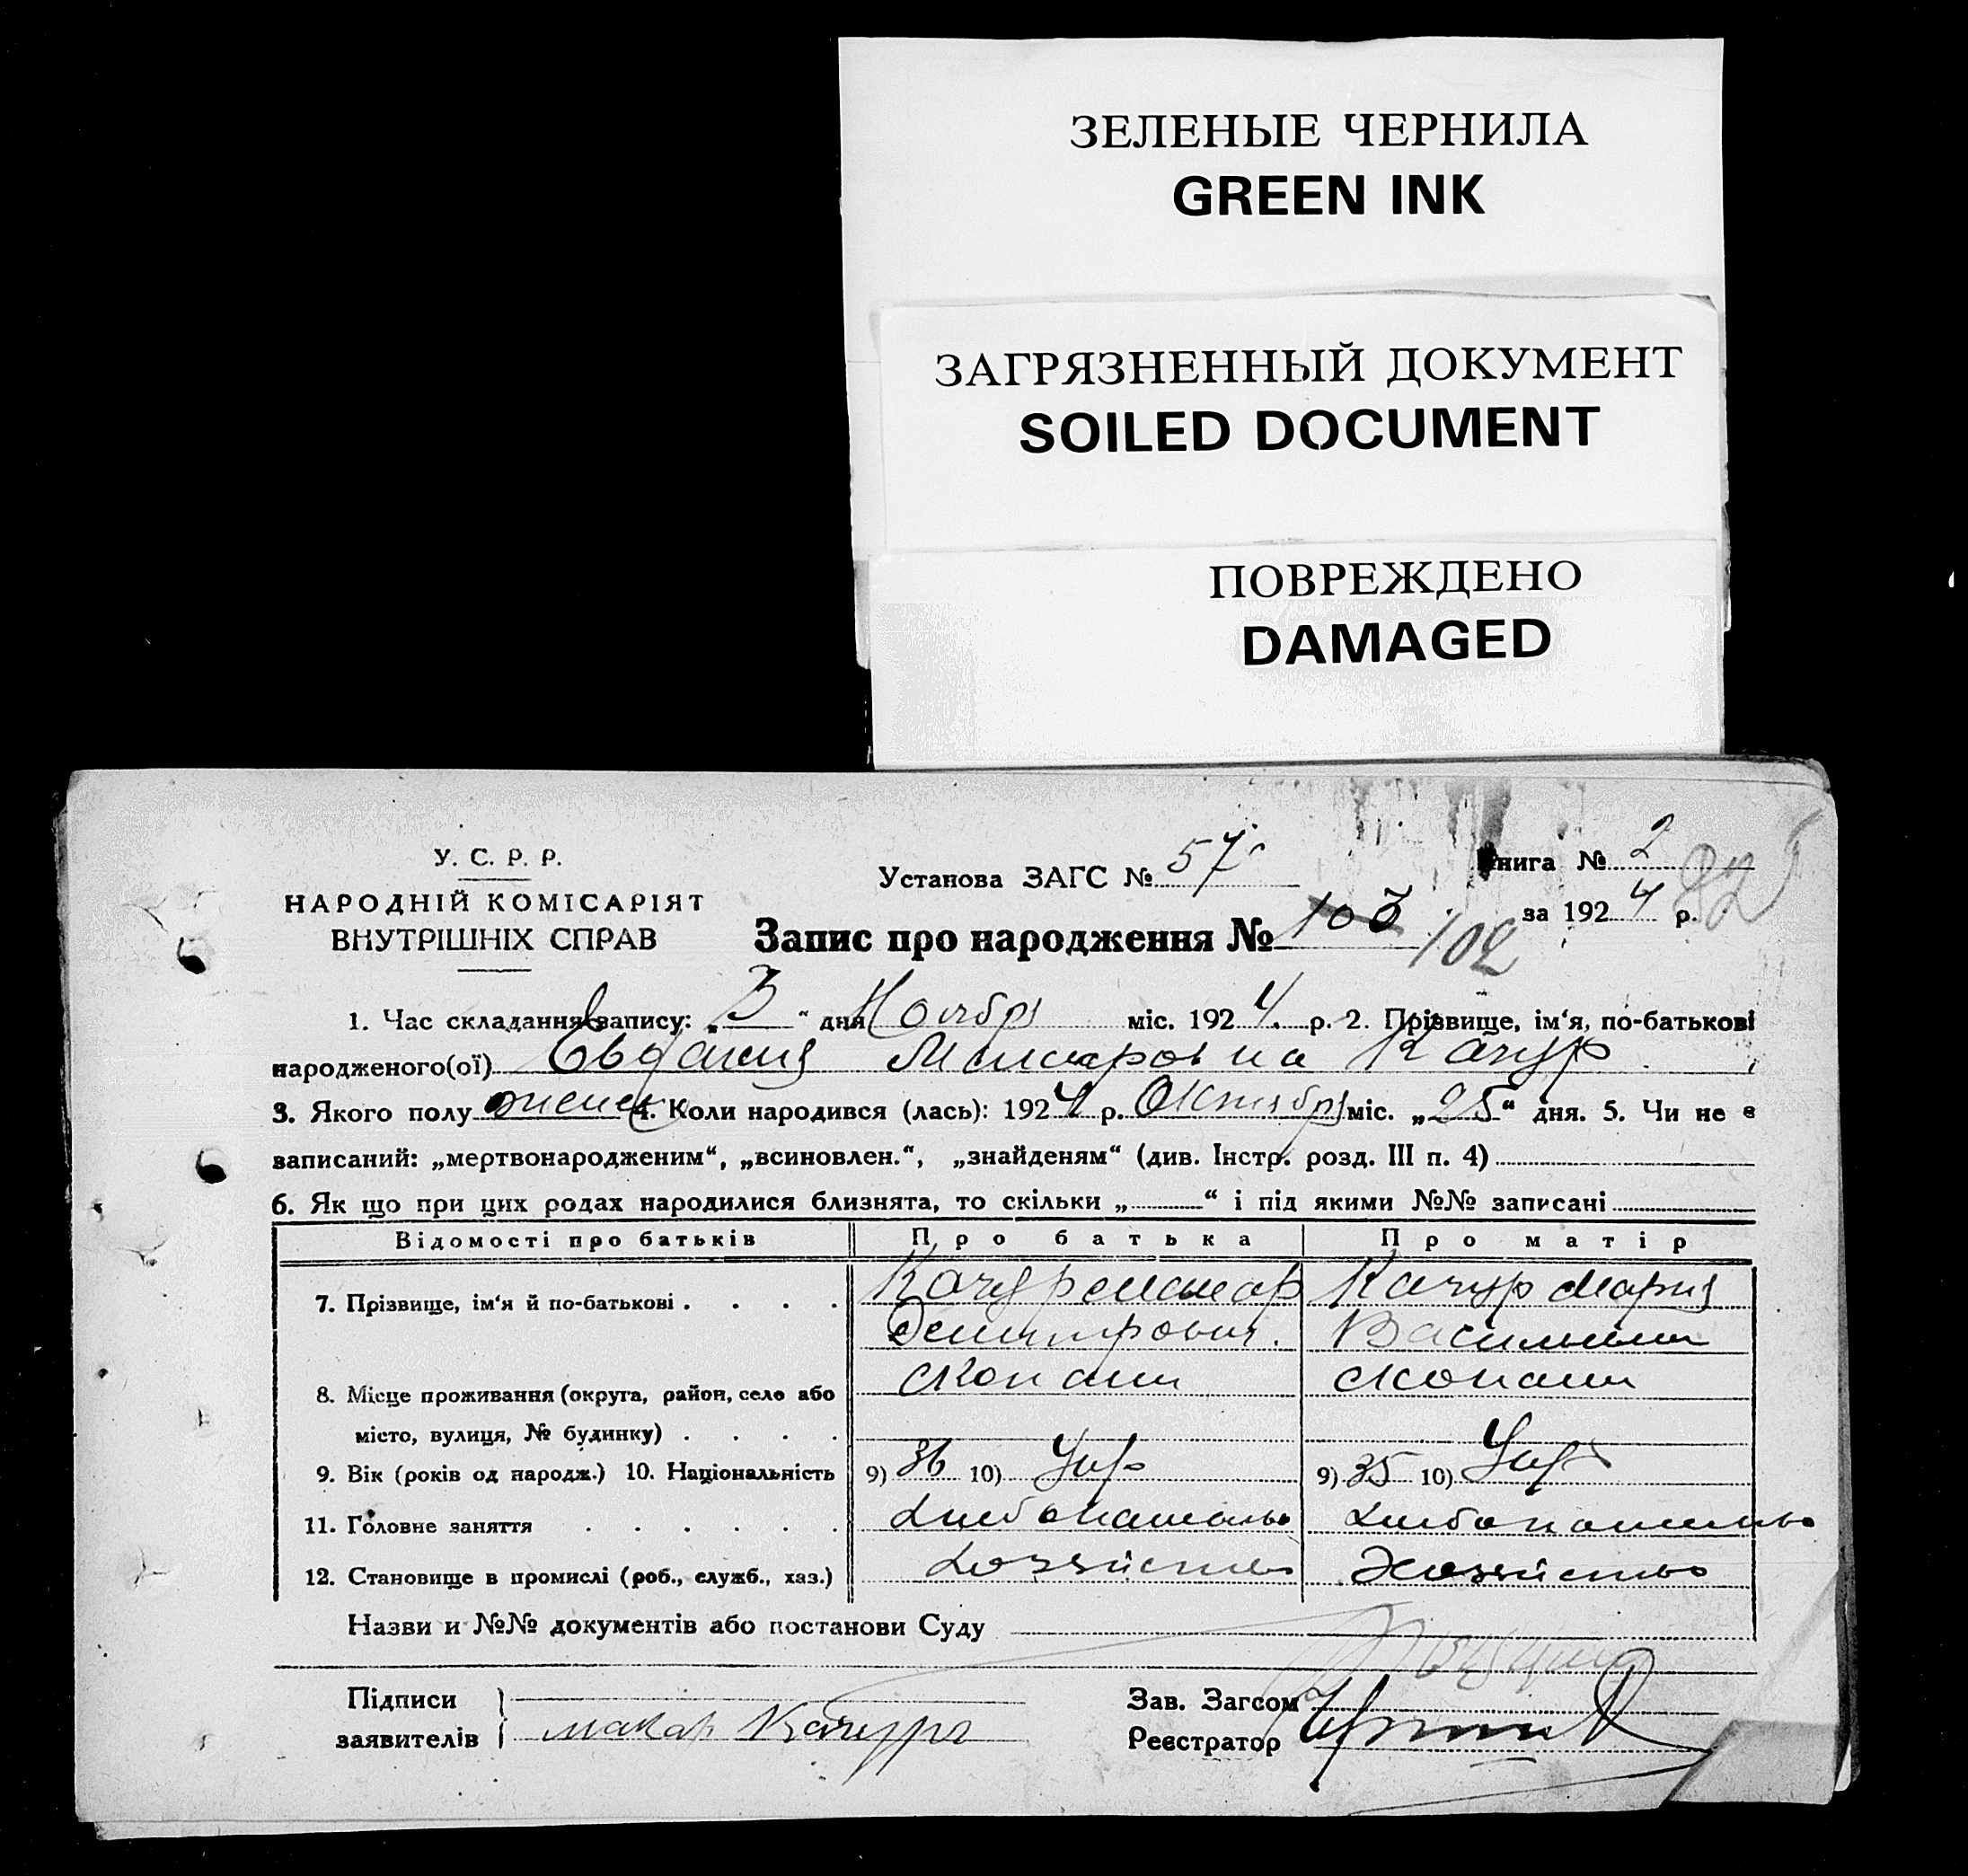 ЗЕЛЕНЫЕ ЧЕРНИЛА
GREEN INK
ЗАГРЯЗНЕННЫЙ ДОКУМЕНТ
SOILED DOCUMENT
ПОВРЕЖДЕНО
DAMAGED
У. С. Р. Р.
НАРОДНІЙ КОМІСАРІЯТ
ВНУТРІШНІХ СПРАВ
Установа ЗАГС № 57
Книга № 2
за 1924 р.
Запис про народження № 103 102
1. Час складання запису: „3“ дня Ноября міс. 1924. р. 2. Прізвище, ім‘я, по-батькові
народженого(ої) Евдокия Макаровна Качур
3. Якого полу женск 4. Коли народився (лась): 1924 р. Октября міс. „25“ дня. 5. Чи не є
записаний: „мертвонародженим“, „всиновлен.“, „знайденям“ (див. Інстр. розд. III п. 4)
6. Як що при цих родах народилися близнята, то скільки „ “ і під якими №№ записані
Відомості про батьків Про батька Про матір
7. Прізвище, ім‘я й по-батькові . . . . Качур Макар Качур Мария
Дмитрович. Васильевна
8. Місце проживання (округа, район, село або
місто, вулиця, № будинку) . . . .
9. Вік (років од народж.) 10. Національність 9) 36 10) Укр 9) 35 10) Укр
11. Головне заняття . . . . . . Хлебопашство Хлебопашство
12. Становище в промислі (роб., служб., хаз.) Хозяйство Хозяйство
Назви и №№ документів або постанови Суду
Підписи
заявителів Макар Качур
Зав. Загсом
Реєстратор